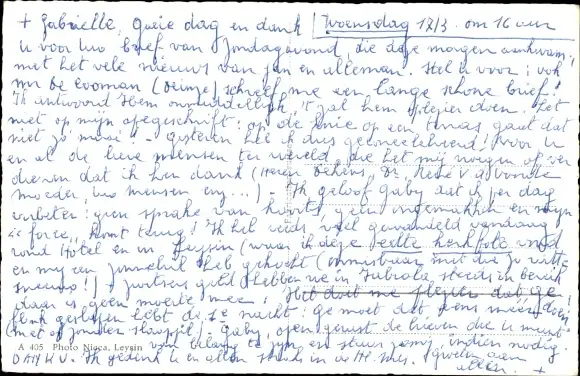 + Gabriëlle, goeie dag en dank
Woensdag 17/3. om 16 uur
U voor Uw brief van Zondagavond, die deze morgen aankwam;
met het vele nieuws van Jan en alleman. Stel U voor: ook
Mr De Cooman (Deinze) schreef me een lange schone brief!
Ik antwoord Hem onmiddellijk, 't zal hem plezier doen. Let
niet op mijn geschrift: op de knie op een terras, gaat dat
niet zo mooi! - Gisteren heb ik dus gecelebreerd: voor U
en al de lieve mensen ter wereld, die het mij mogen of ver
dienen dat ik hen dank (Heren Dekens, Dr. René V
moeder, Uw mensen en, ...) - Ik geloof Gaby dat ik per dag
verbeter: geen sprake van koorts, geen ongemakken en mijn
"force" komt terug! Ik heb reeds veel gewandeld vandaag
rond Hotel en in Leysin (waar ik deze
en mij een zonnebril heb gekocht (onmisbaar met die zo witte
sneeuw!) + juist geld hebben we in Fabiola steeds in bereik
daar is geen moeite mee: Het doet me plezier dat ge
flink geslapen hebt de nacht: Ge moet dat eens meer doen
(met of zonder slaappil). Gaby, open gerust de brieven die U meent
A 405 Photo Nicca, Leysin
van belang te zijn en stuur ze mij indien nodig.
DANK U. Ik gedenk U en allen steeds in de H. Mis.
allen. +